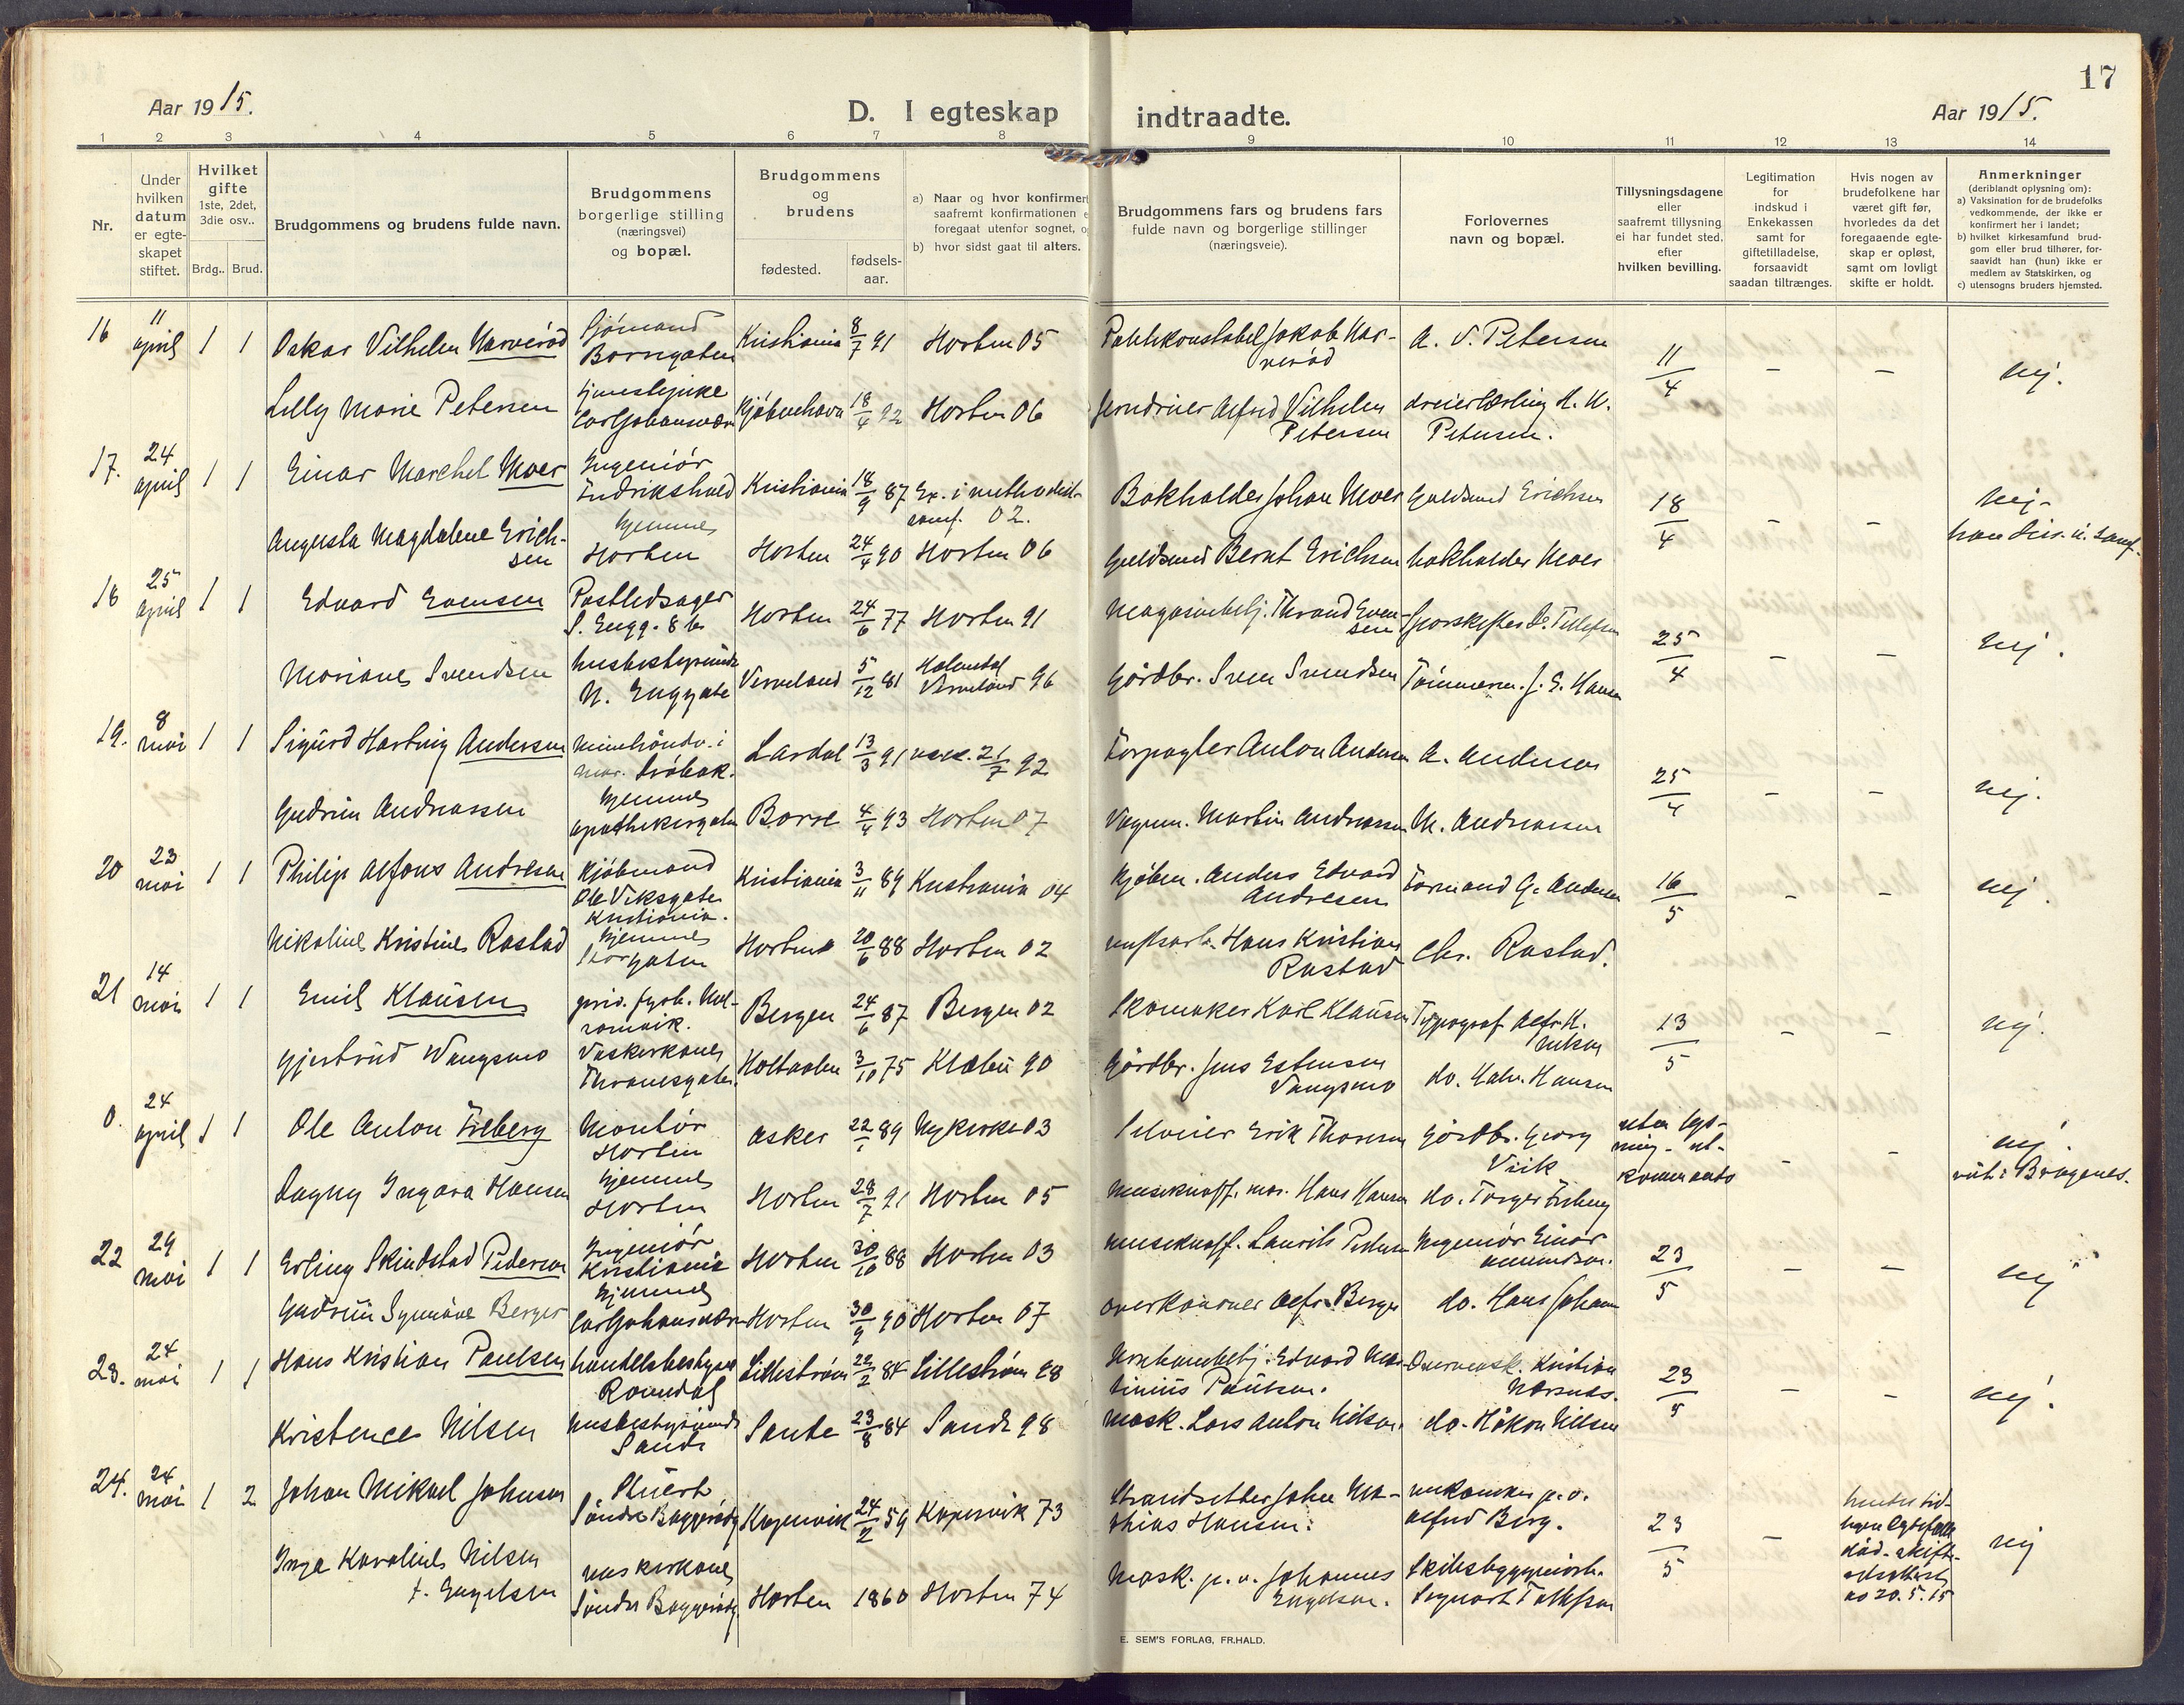 17
Aar 1915.
D. I egteskap indtraadte.
Aar 1915.
1 2 3 4 5 6 7 8 9 10 11 12 13 14
Nr.
Under
hvilken
datum
er egte-
skapet
stiftet.
Hvilket
gifte
1ste, 2det,
3die osv..
Brdg.. Brud.
Brudgommens og brudens fulde navn.
Brudgommens
borgerlige stilling
(næringsvei)
og bopæl.
Brudgommens
og
brudens
fødested.
fødsels-
aar.
a) Naar og hvor konfirmert
saafremt konfirmationen
foregaat utenfor sognet,
b) hvor sidst gaat til alters.
Brudgommens fars og brudens fars
fulde navn og borgerlige stillinger
(næringsveie).
Forlovernes
navn og bopæl.
Tillysningsdagene
eller
saafremt tillysning
ei har fundet sted,
efter
hvilken bevilling.
Legitimation
for
indskud i
Enkekassen
samt for
giftetilladelse,
forsaavidt
saadan tiltrænges.
Hvis nogen av
brudefolkene har
været gift før,
hvorledes da det
foregaaende egte-
skap er opløst,
samt om lovligt
skifte er holdt.
Anmerkninger
(deriblandt oplysning om):
a) Vaksination for de brudefolks
vedkommende, der ikke er
konfirmert her i landet;
b) hvilket kirkesamfund brud-
gom eller brud tilhører, for-
saavidt han (hun) ikke er
medlem av Statskirken, og
c) utensogns bruders hjemsted.
16 11 april 1 1 Oskar Vilhelm Harverød Sjømand Borregaten Kristiania 8/7 91 Horten 05 Politikonstabel Jakob Har-
verød A. V. Petersen 11/4 – – nej.
Lilly Marie Petersen tjenestepike Carljohansværn Kjøbenhavn 18/4 92 Horten 06 Jerndreier Alfred Vilhelm
Petersen dreierlærling H. W.
Petersen.
17. 24 april 1 1 Einar Marchel Moer Ingeniør Fredrikshald Kristiania 18/9 87 Ex. i methodist-
samf. 02. Bokholder Johan Moer Guldsmed Erichsen 18/4 – – nej-
Augusta Magdalene Erich-
sen hjemme Horten Horten 24/4 90 Horten 06 Guldsmed Bernt Erichsen bokholder Moer
18 25 april 1 1 Edvard Evensen Postledsager Horten 24/6 77 Horten 91 Magasinbetj. Thrond Even-
sen 25/4 – – nej.
Mariane Svendsen husbestyrerinde N. Enggate Vermeland 5/12 81 Vermeland 96 Gårdbr. Sven Svendsen Tømmerm. J. E. Hansen
19. 8 mai 1 1 Sigurd Hartvig Andersen Minehåndv. i mar. Lardal 13/3 91 21/7 92 Forpagter Anton Andersen A. Andersen 25/4 – – nej.
Gudrun Andreassen hjemme apothekergaten Borre 4/4 93 Horten 07 Vognm. Martin Andreassen M. Andreassen
20 23 mai 1 1 Philip Alfons Andresen Kjøbmand
Ole Viksgate
Kristiania. Kristiania 3/11 89 Kristiania 04 Kjøbm. Anders Edvard
Andresen Formand G. Andersen 16/5 – – nej.
Nikoline Kristine Rastad hjemme
Storgaten Horten 20/6 88 Horten 02 Hans Kristian
Rastad Chr. Rastad.
21 14 mai 1 1 Emil Klausen Bergen 24/6 87 Bergen 02 Skomaker Karl Klausen Typograf Alfr. H.
Nilsen 13/5 – – nej.
Gjertrud Wangsmo Vaskerkone
Thranesgate. Holtaalen 3/10 75 Klæbu 90 Gårdbr. Jens Estensen
Vangsmo do. Halv. Hansen
0. 24 april 1 1 Ole Anton Friberg Montør
Horten Asker 22/1 89 Nykirke 03 Selveier Erik Thoresen Gårdbr. Georg
Viik – – nej.
viet i Bragenes.
Dagny Ingara Hansen hjemme
Horten Horten 28/7 91 Horten 05 Musikunoff. mar. Hans Hansen do. Torger Friberg
22 29 mai 1 1 Erling Skindstad Pedersen Ingeniør
Kristiania Horten 30/10 88 Horten 03 Musikunoff. Laurits Pedersen Ingeniør Einar
Amundsen. 23/5 – – nej
Gudrun Synnøve Berger hjemme
Carljohansværn Horten 30/9 90 Horten 07 overkanoner Alfr. Berger do. Hans Johan
23. 24 mai 1 1 Hans Kristian Paulsen handelsbestyrer
Romedal Lillestrøm 22/2 84 Lillestrøm 98 Edvard Mar-
tinius Paulsen. Kristian
Næsnes. 23/5 – – nej.
Kristence Nilsen husbestyrerinde
Sande Sande 23/8 84 Sande 98 Mask. Lars Anton Nilsen. do. Håkon Nilsen
24. 24 mai 1 2 Johan Mikael Johnsen Stuert
Søndre Baggerødg. Kopervik 24/2 59 Kopervik 73 Strandsitter John Ma-
thias Hansen. mekaniker p.v.
Alfred Berg. 23/5 – nej
Inga Karoline Nilsen
f. Engelsen vaskerkone
Søndre Baggerødg. Horten 1860 Horten 74 Mask. p. v. Johannes
Engelsen. Skibsbyggmester.
20.5.15
E. SEM'S FORLAG, FR.HALD.